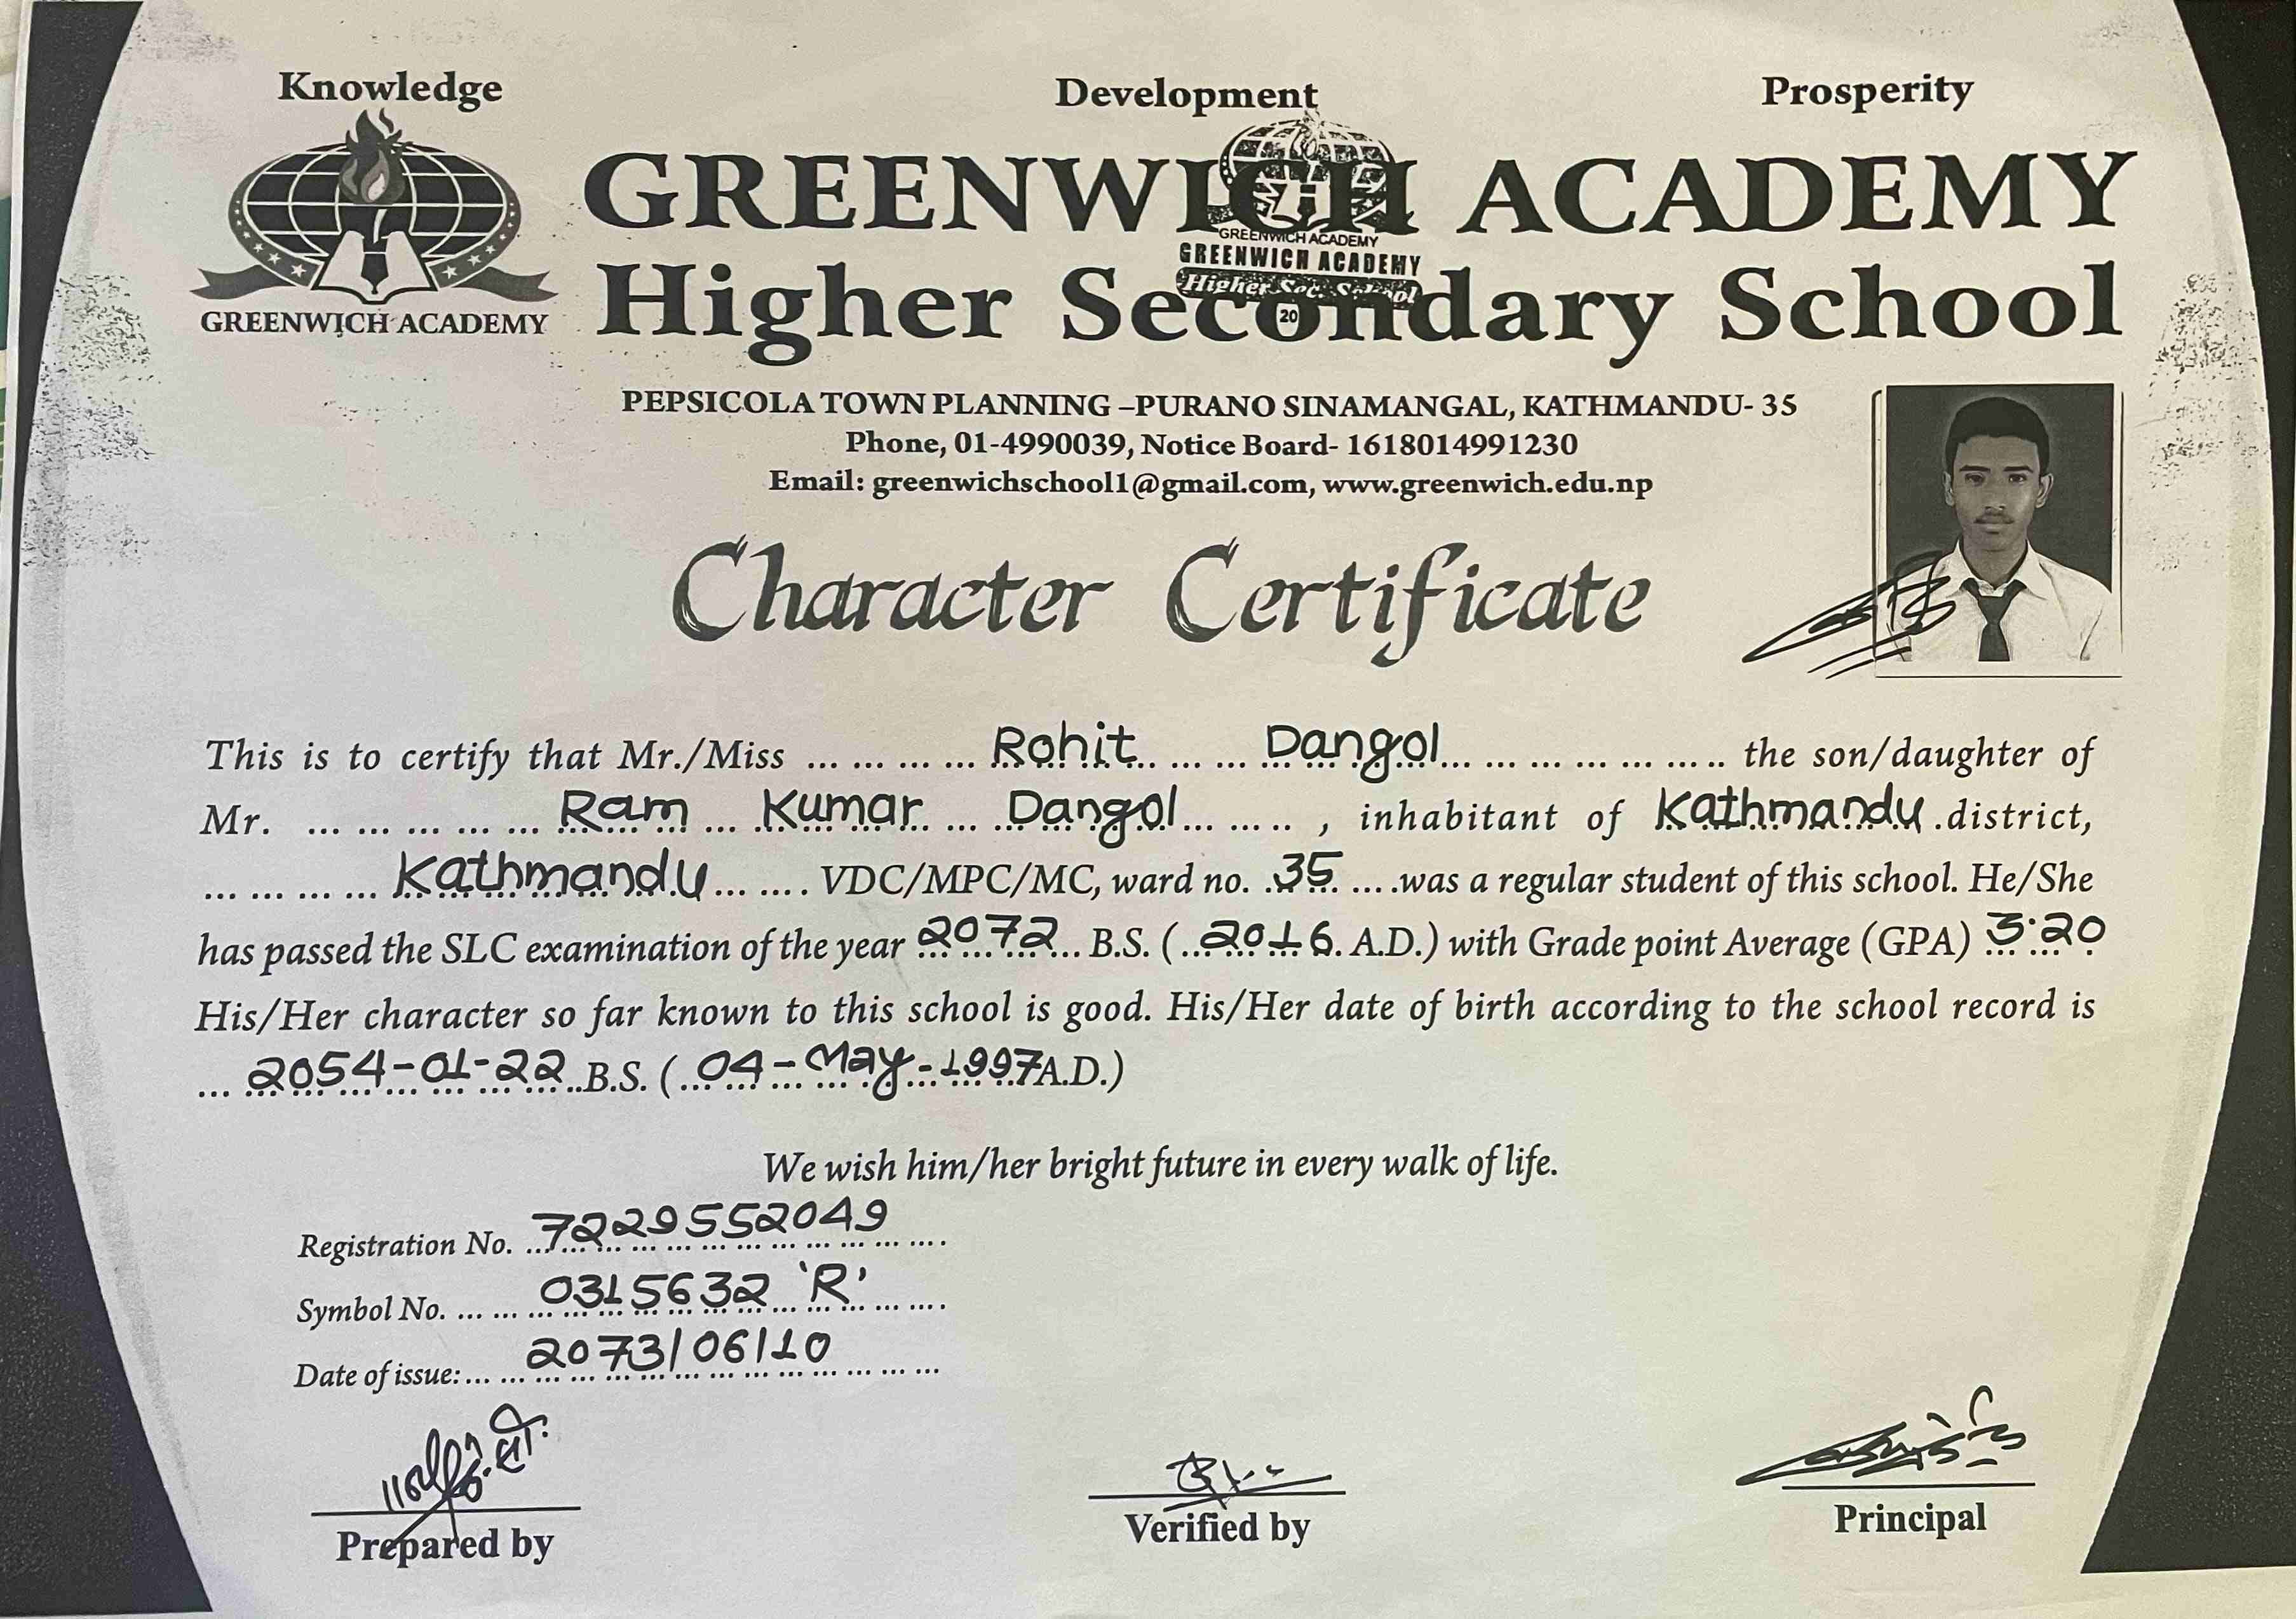 Knowledge Development Prosperity
GREENWICH ACADEMY
GREENWICH ACADEMY
GREENWICH ACADEMY
Higher Sec. School
20
Higher Secondary School
GREENWICH ACADEMY
PEPSICOLA TOWN PLANNING –PURANO SINAMANGAL, KATHMANDU- 35
Phone, 01-4990039, Notice Board- 1618014991230
Email: greenwichschool1@gmail.com, www.greenwich.edu.np
Character Certificate
This is to certify that Mr./Miss ... ... ... ... Rohit ... ... Dangol ... ... ... ... ... ... .. the son/daughter of
Mr. ... ... ... ... ... Ram ... Kumar ... Dangol ... ... .. , inhabitant of Kathmandu . district,
... ... ... ... Kathmandu ... .... VDC/MPC/MC, ward no. .35 ... .was a regular student of this school. He/She
has passed the SLC examination of the year 2072 ... B.S. (..2016. A.D.) with Grade point Average (GPA) 3.20
His/Her character so far known to this school is good. His/Her date of birth according to the school record is
... 2054-01-22 ..B.S. (...04-May-1997 A.D.)
We wish him/her bright future in every walk of life.
Registration No. ...7229552049 ....
Symbol No. ... ... 0315632 'R' ... ....
Date of issue:... ... 2073/06/10 ... ... ...
Prepared by Verified by Principal